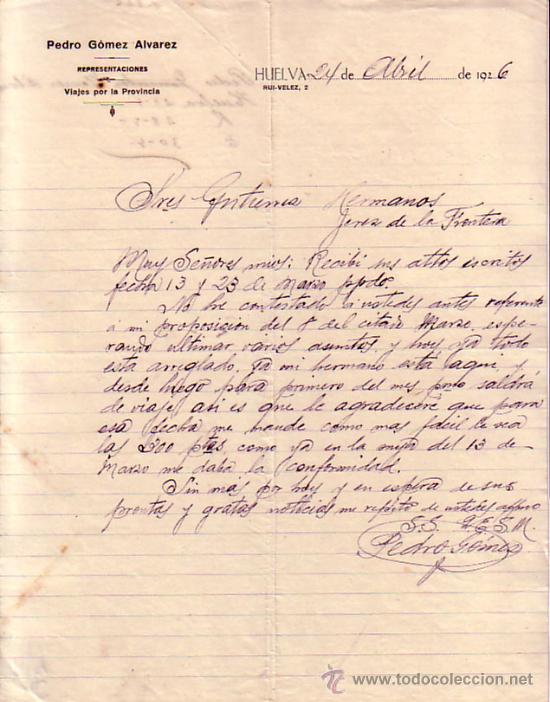 Pedro Gómez Alvarez
REPRESENTACIONES
Viajes por la Provincia
HUELVA 24 de Abril de 1926
RUI-VELEZ, 2
Sres Gutierrez Hermanos
Jerez de la Frontera
Muy Señores mios: Recibi sus attos escritos
fecha 13 y 23 de Marzo ppdo.
No he contestado a ustedes antes referente
a mi proposicion del 8 del citado Marzo, espe-
rando ultimar varios asuntos, y hoy ya todo
esta arreglado, ya mi hermano está aqui, y
desde luego para primero del mes pmo saldrá
de viaje, asi es que le agradeceré que para
esa fecha me mande como mas facil le sea
las 300 ptas, como ya en la suya del 13 de
Marzo me daba la conformidad.
Sin mas por hoy y en espera de sus
prontas y gratas noticias me repito de ustedes affmo
S.S. Q.E.S.M.
Pedro Gómez
www.todocoleccion.net